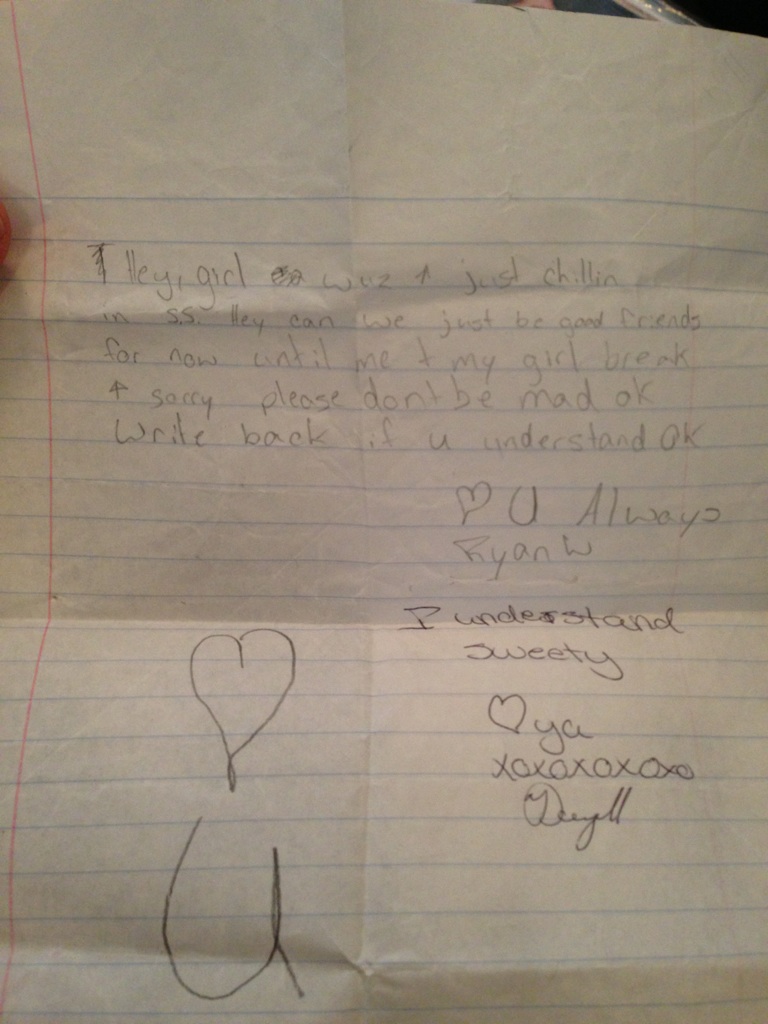 Hey, girl wuz ↑ just chillin
in S.S. Hey can we just be good friends
for now until me + my girl break
↑ sorry please dont be mad ok
Write back if u understand OK
♡ U Always
Ryan W
I understand
sweety
♡ ya
xoxoxoxoxo
♡
U